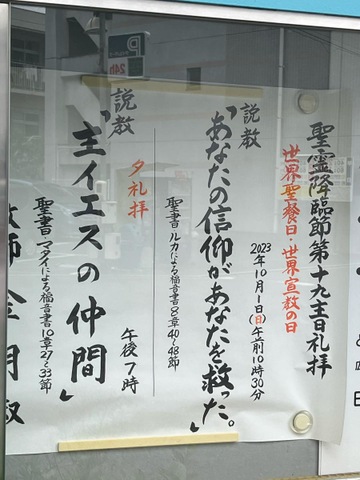 聖霊降臨節第十九主日礼拝
世界聖餐日・世界宣教の日
2023年10月1日(日)午前10時30分
説教
「あなたの信仰があなたを救った」。
聖書・ルカによる福音書8章40〜48節
夕礼拝
午後7時
説教
「主イエスの仲間」
聖書・マタイによる福音書10章27〜33節